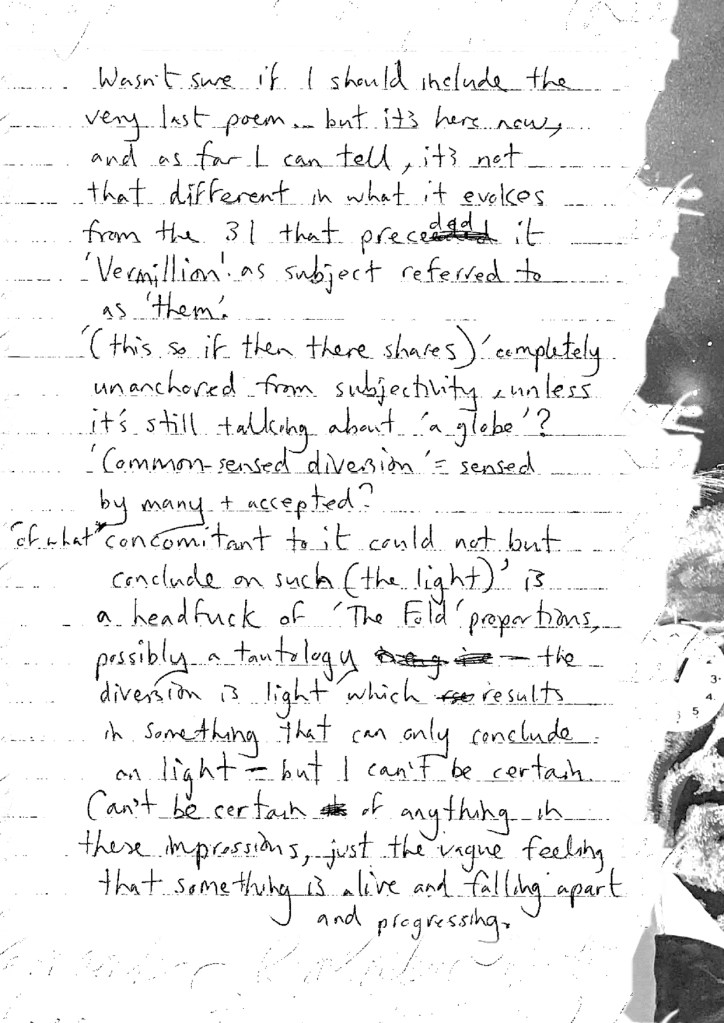 Wasn't sure if I should include the
very last poem... but it's here now,
and as far I can tell, it's not
that different in what it evokes
from the 31 that preceeded it
'Vermillion' as subject referred to
as 'them'.
'(this so if then there shares)' completely
unanchored from subjectivity, unless
it's still talking about 'a globe'?
'Common-sensed diversion' = sensed
by many + accepted?
'of what concomitant to it could not but
conclude on such (the light)' is
a headfuck of 'The Fold' proportions,
possibly a tautology – the
diversion is light which results
in something that can only conclude
on light – but I can't be certain.
Can't be certain of anything in
these impressions, just the vague feeling
that something is alive and falling apart
and progressing.
3
4
5